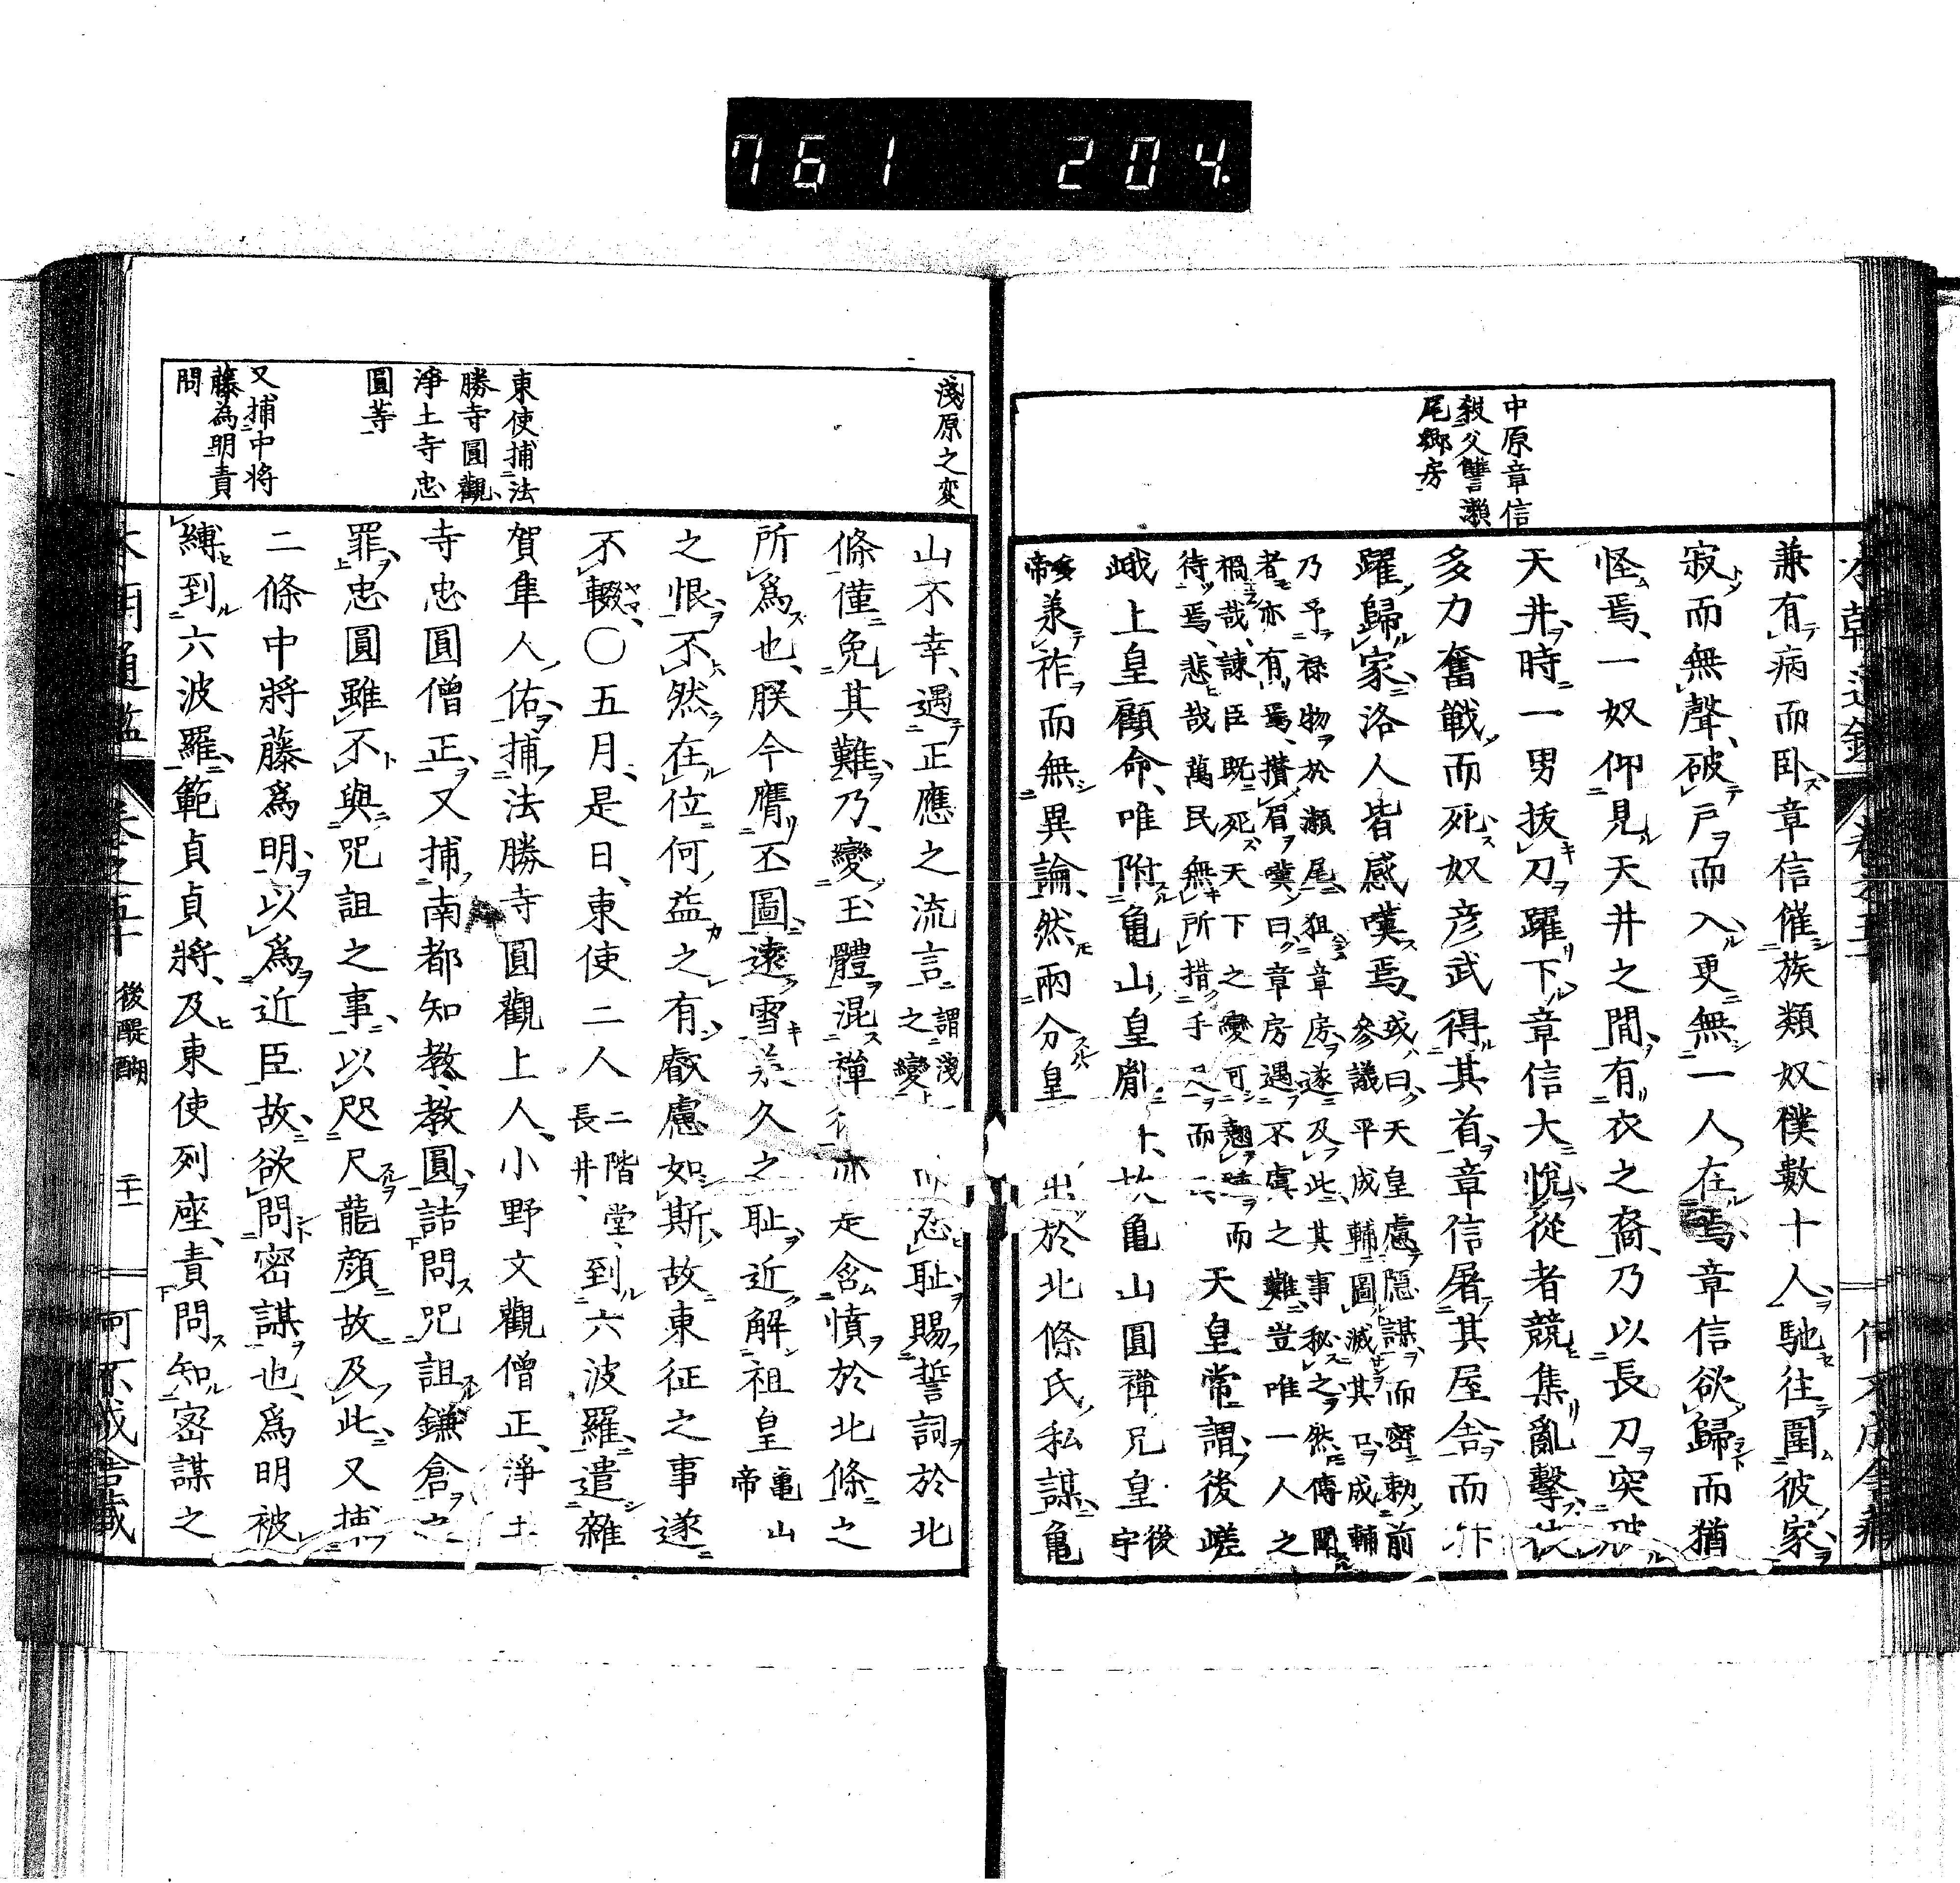 761 204
中原章信
殺父讐瀬
尾郷房
兼有病而臥章信催族類奴僕數十人馳往圍彼家
寂而無聲破戸而入更無一人在焉章信欲歸而猶
怪焉一奴仰見天井之間有衣之裔乃以長刀突
天井時一男抜刀躍下章信大悅從者競集亂擊
多力奮戰而死奴彦武得其首章信屠其屋舎而
躍歸家洛人皆感嘆焉
或曰天皇慮隠謀而密勅前
參議平成輔圖滅其口成輔
乃予祿物於瀬尾狙章房遂及此其事秘之然傳聞
者亦有焉攢眉嘆曰章房遇不虞之難豈唯一人之
禍哉諫臣既死天下之變可翹而
待焉悲哉萬民無所措手足而
天皇常謂後嵯
峨上皇顧命唯附亀山皇胤
亀山圓禪兄皇
後
宇
帝羨祚而無異論然兩分皇
出於北條氏私謀亀
淺原之変
東使捕法
勝寺圓觀
淨土寺忠
圓等
又捕中将
藤為明責
問
山不幸遇正應之流言
謂淺
之變
忍耻賜誓詞於北
條僅免其難乃變玉體混禪
亦走含憤於北條之
所爲也朕今膺丕圖遠雪
久之耻近解祖皇
亀山
帝
之恨不然在位何益之有叡慮如斯故東征之事遂
不輟〇五月是日東使二人
二階堂
長井
到六波羅遣雜
賀隼人佑捕法勝寺圓觀上人小野文觀僧正淨土
寺忠圓僧正又捕南都知教教圓詰問咒詛鎌倉之
罪忠圓雖不與咒詛之事以咫尺龍顔故及此又捕
二條中將藤爲明以爲近臣故欲問密謀也爲明被
縛到六波羅範貞貞將及東使列座責問知密謀之
後醍醐
二十一